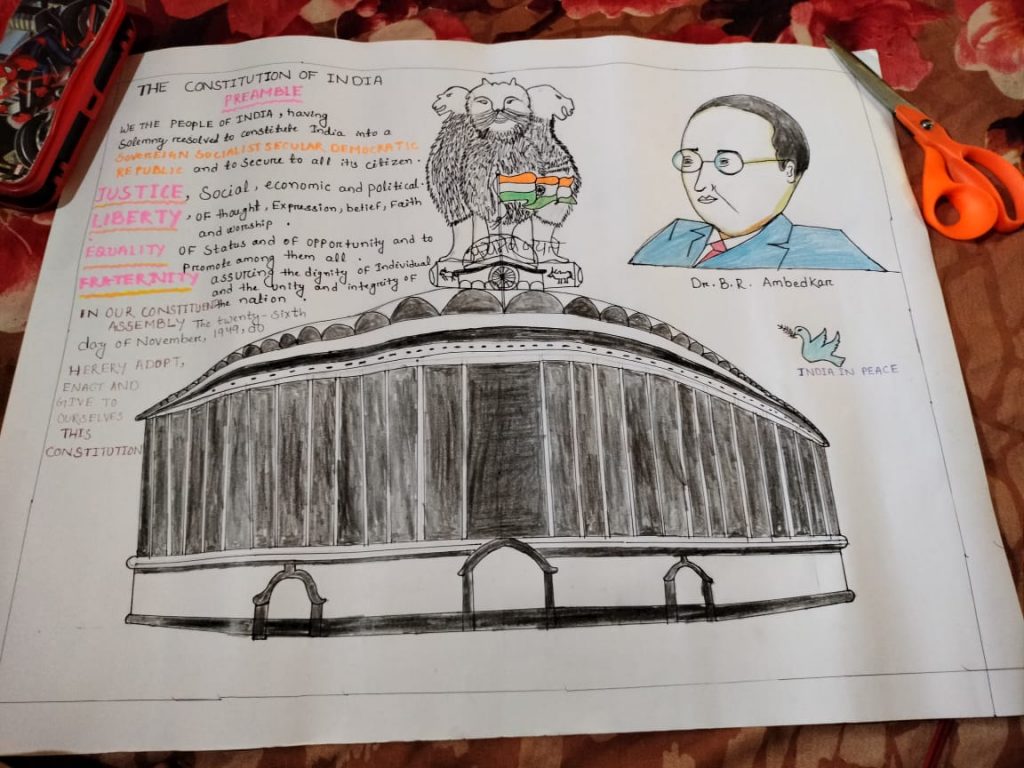 THE CONSTITUTION OF INDIA
PREAMBLE
WE THE PEOPLE OF INDIA, having
Solemny reesolved to constitute India into a
SOVEREIAN SOCIALIST SECULAR DEMOCRATIC
REPUBLIC and to secure to all its citizen.
JUSTICE, Social, economic and political.
LIBERTY, OF thought, Expression, belief, Faith
and worship.
EQUALITY OF Status and of opportunity and to
Promote among them all.
FRATERNITY assuring the dignity of Individual
and the unity and integrity of
the nation
IN OUR CONSTITUENT
ASSEMBLY The twenty-sixth
day of November, 1949, do
HERERY ADOPT,
ENACT AND
GIVE TO
OURSELVES
THIS
CONSTITUTION
सत्यमेव जयते
Dr. B. R. Ambedkar
INDIA IN PEACE